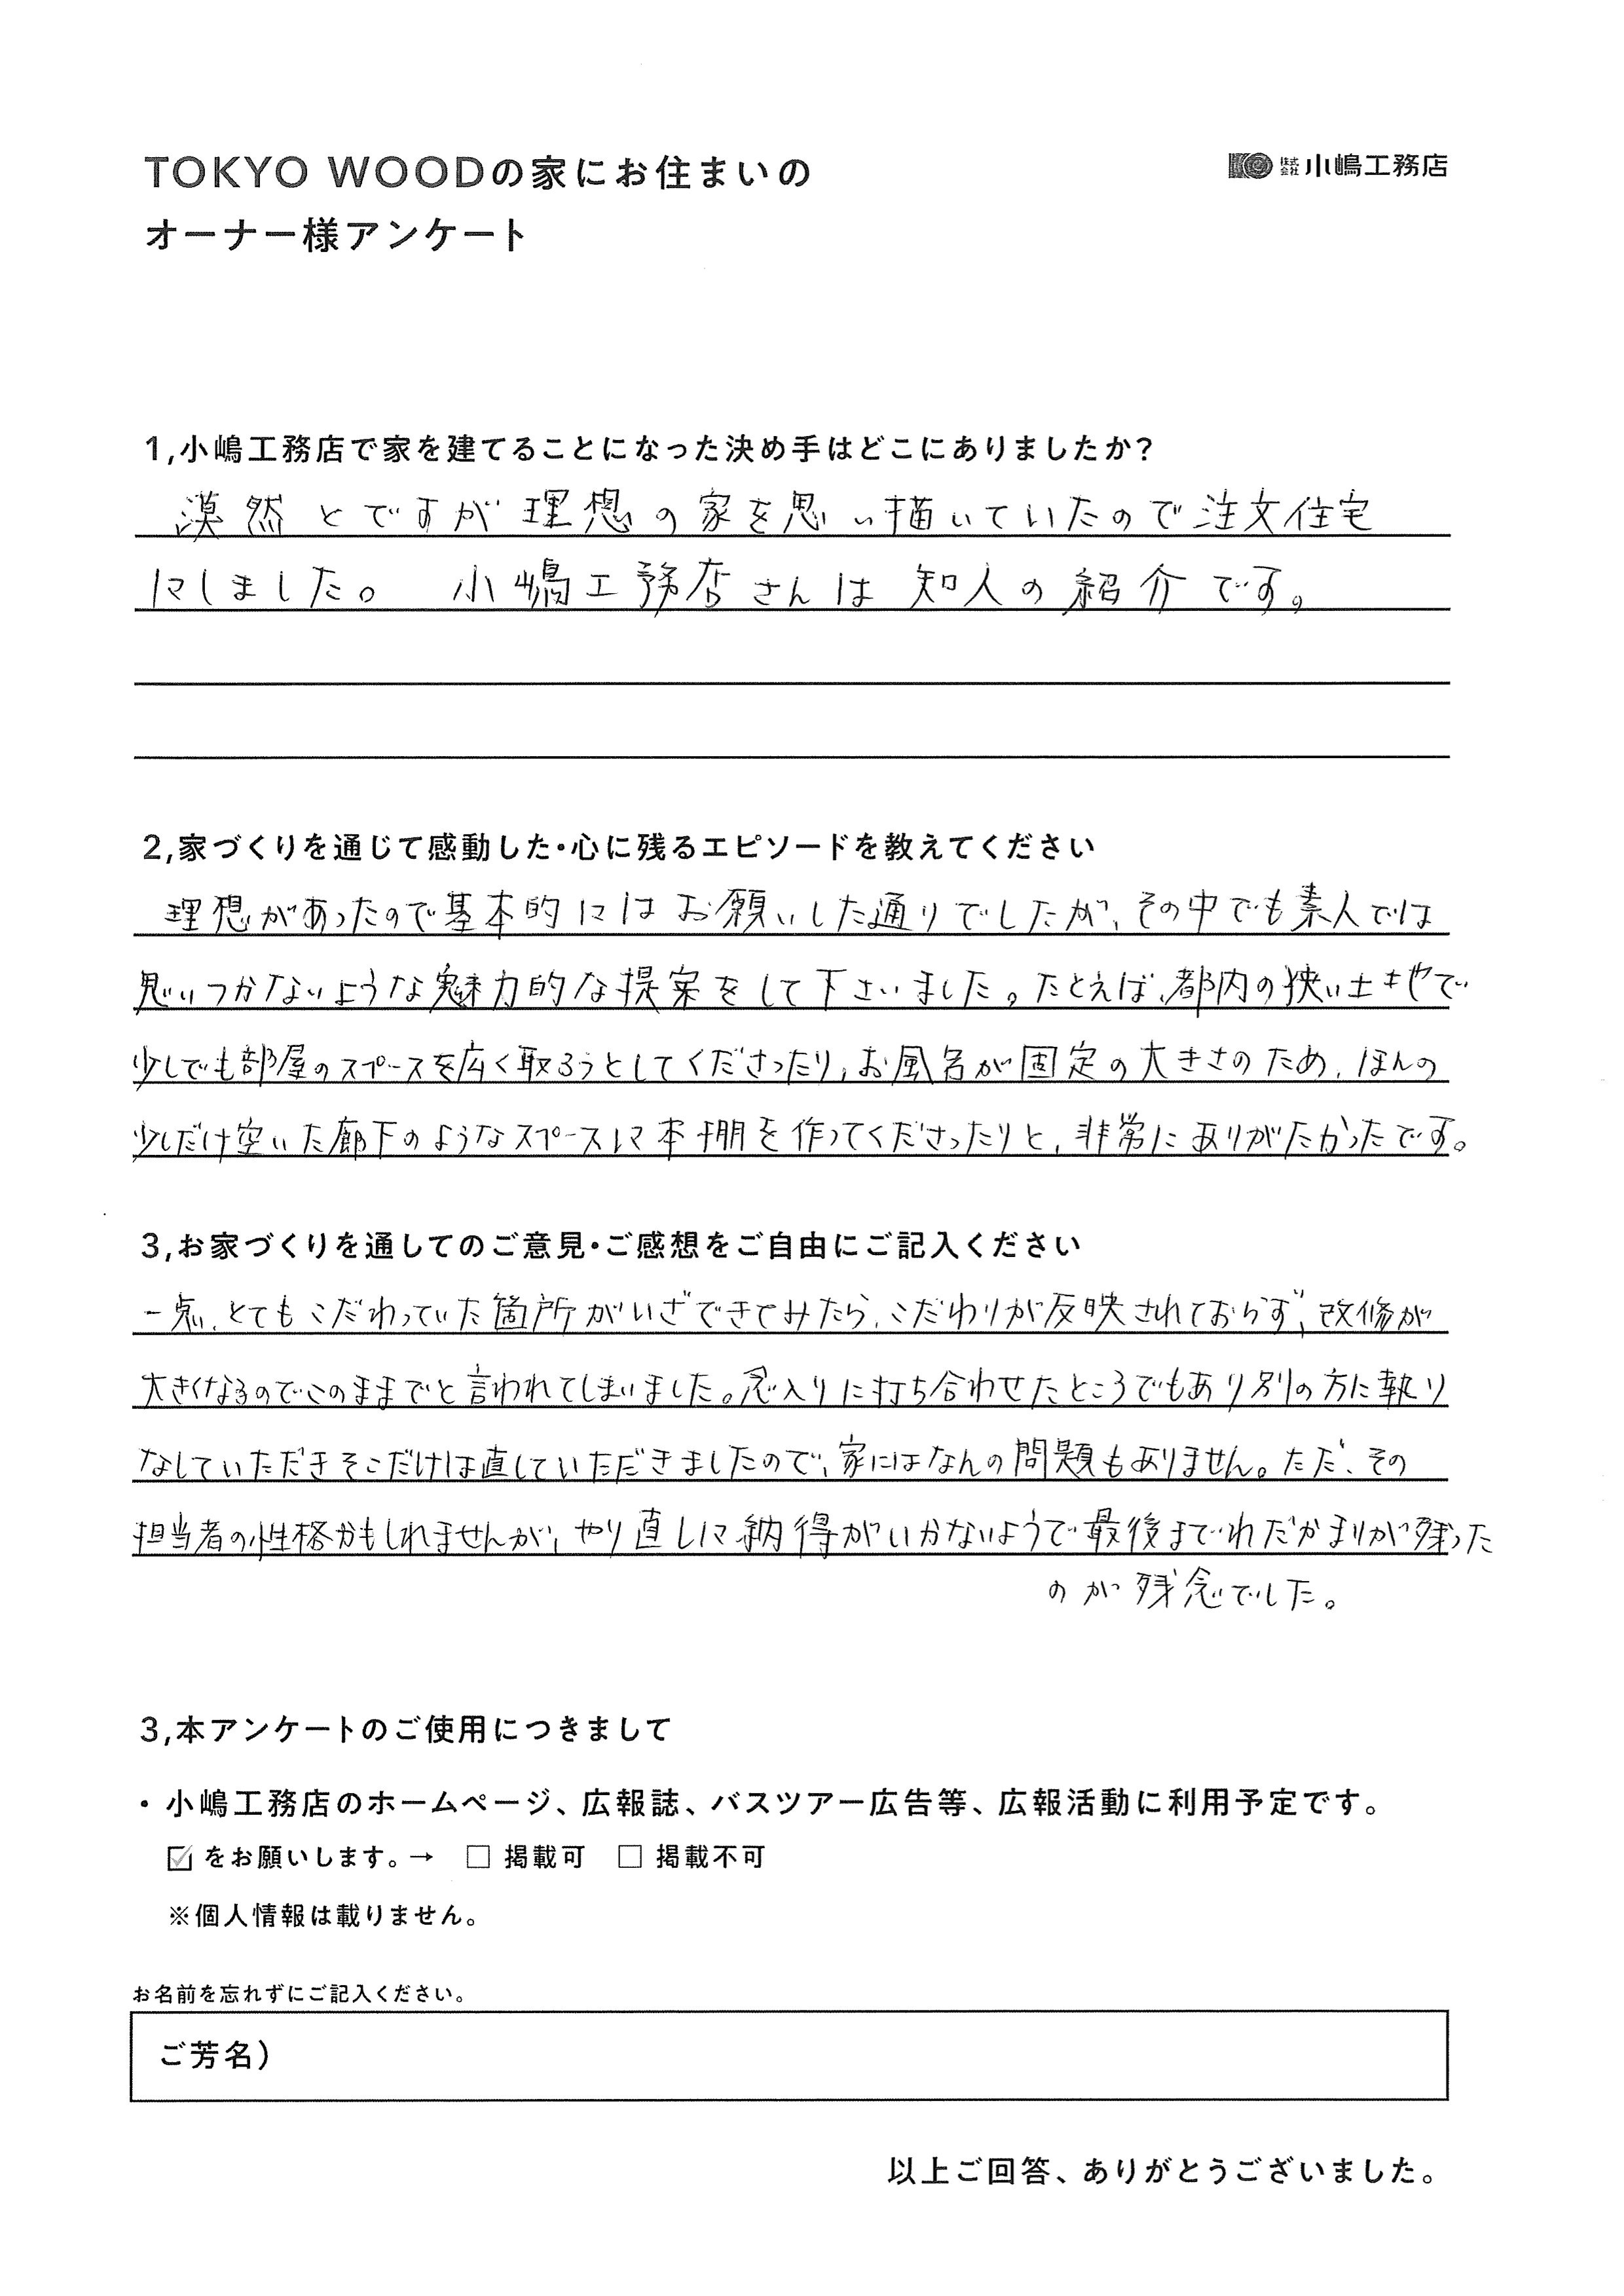 TOKYO WOODの家にお住まいの
株式会社 小嶋工務店
オーナー様アンケート
1,小嶋工務店で家を建てることになった決め手はどこにありましたか?
漠然とですが理想の家を思い描いていたので注文住宅
にしました。 小嶋工務店さんは知人の紹介です。
2,家づくりを通じて感動した・心に残るエピソードを教えてください
理想があったので基本的にはお願いした通りでしたが、その中でも素人では
思いつかないような魅力的な提案をして下さいました。たとえば、都内の狭い土地で
少しでも部屋のスペースを広く取ろうとしてくださったり、お風呂が固定の大きさのため、ほんの
少しだけ空いた廊下のようなスペースに本棚を作ってくださったりと、非常にありがたかったです。
3,お家づくりを通してのご意見・ご感想をご自由にご記入ください
一点、とてもこだわっていた箇所がいざできてみたら、こだわりが反映されておらず、改修が
大きくなるのでこのままでと言われてしまいました。念入りに打ち合わせたところでもあり別の方に執り
なしていただきそこだけは直していただきましたので、家にはなんの問題もありません。ただ、その
担当者の性格かもしれませんが、やり直しに納得がいかないようで最後までわだかまりが残った
のが残念でした。
3,本アンケートのご使用につきまして
・小嶋工務店のホームページ、広報誌、バスツアー広告等、広報活動に利用予定です。
☑をお願いします。→ □ 掲載可 □ 掲載不可
※個人情報は載りません。
お名前を忘れずにご記入ください。
ご芳名)
以上ご回答、ありがとうございました。